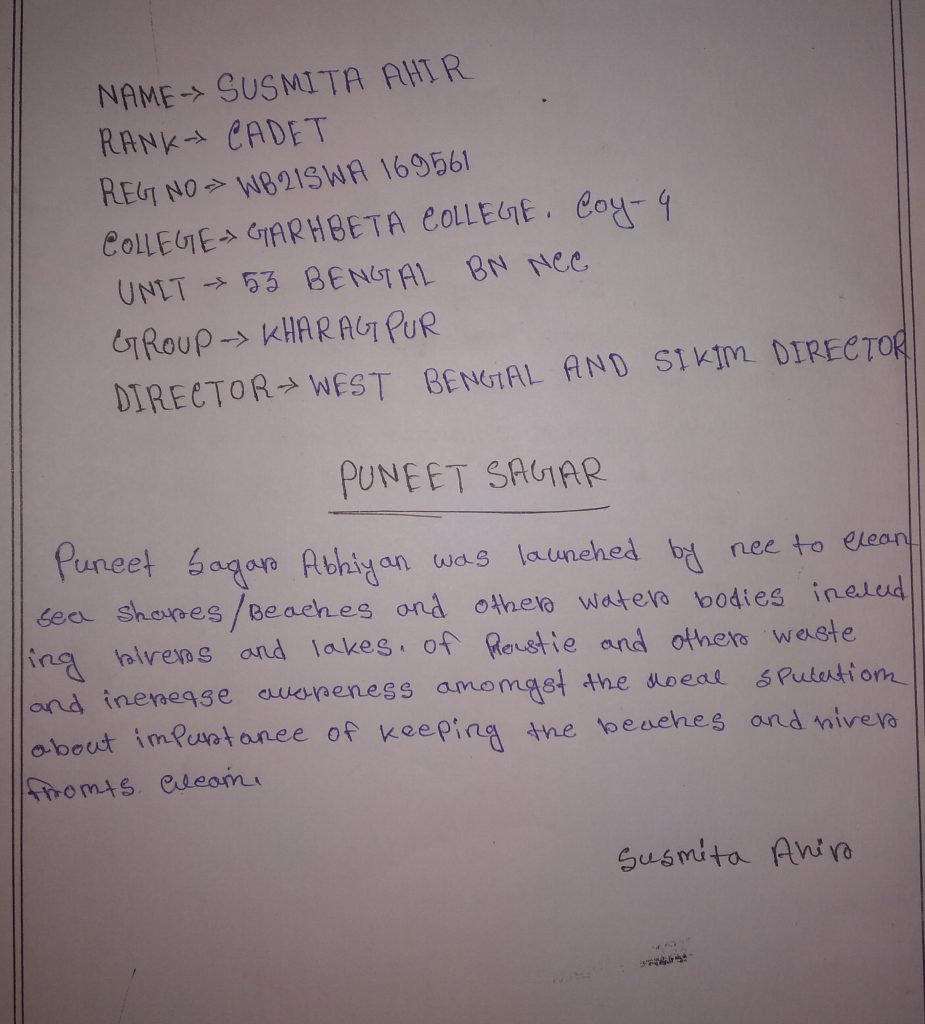 NAME→ SUSMITA AHIR
RANK→ CADET
REG NO→ WB21SWA 169561
COLLEGE→ GARHBETA COLLEGE. Coy-4
UNIT → 53 BENGAL BN NCC
GROUP→ KHARAGPUR
DIRECTOR→ WEST BENGAL AND SIKIM DIRECTOR
PUNEET SAGAR
Puneet Sagar Abhiyan was launched by ncc to clean
sea shores/Beaches and other water bodies includ
ing rivers and lakes. of Plastic and other waste
and increase awareness amongst the local spulation
about importance of keeping the beaches and river
fronts. clean.
Susmita Ahir